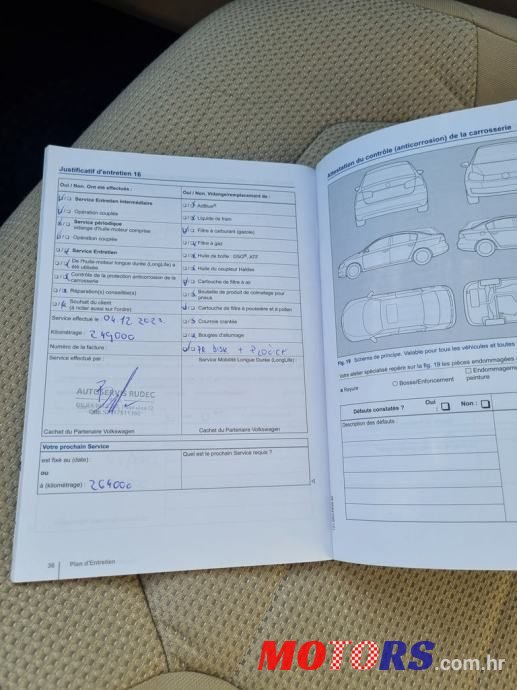 Justificatif d'entretien 16
Oui / Non. Ont été effectués :
Service Entretien intermédiaire
Opération couplée
Service périodique
vidange d'huile moteur comprise
Opération couplée
Service Entretien
De l'huile moteur longue durée (LongLife) a
été utilisée
Contrôle de la protection anticorrosion de la
carrosserie
Réparation(s) conseillée(s)
Souhait du client
(à noter aussi sur l'ordre)
Service effectué le 04.12.2022
Kilométrage : 249000
Numéro de la facture :
Service effectué par :
AUTOSERVIS RUDEC
Cachet du Partenaire Volkswagen
Oui / Non. Vidange/remplacement de :
AdBlue®
Liquide de frein
Filtre à carburant (gazole)
Filtre à gaz
Huile de boîte : DSG®, ATF
Huile du coupleur Haldex
Cartouche de filtre à air
Bouteille de produit de colmatage pour
pneus
Cartouche de filtre à poussière et à pollen
Courroie crantée
Bougies d'allumage
DISK +
Service Mobilité Longue Durée (LongLife) :
Cachet du Partenaire Volkswagen
Votre prochain Service
est fixé au (date) :
ou
à (kilométrage) : 264000
Quel est le prochain Service requis ?
36 Plan d'Entretien
Attestation du contrôle (anticorrosion) de la carrosserie
Fig. 19 Schéma de principe. Valable pour tous les véhicules et toutes
votre atelier spécialisé repère sur la fig. 19 les pièces endommagées
Rayure
Bosse/Enfoncement
Endommagement
peinture
Défauts constatés ?
Oui
Non :
Description des défauts :
MOTORS.com.hr